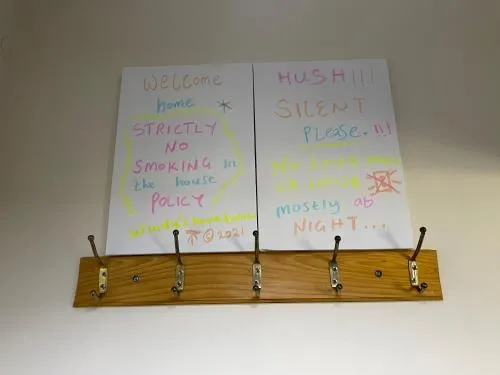 Welcome
home
STRICTLY
NO
SMOKING in
the house
POLICY
© 2021
HUSH!!!
SILENT
PLEASE.!!!
No
mostly at
NIGHT...